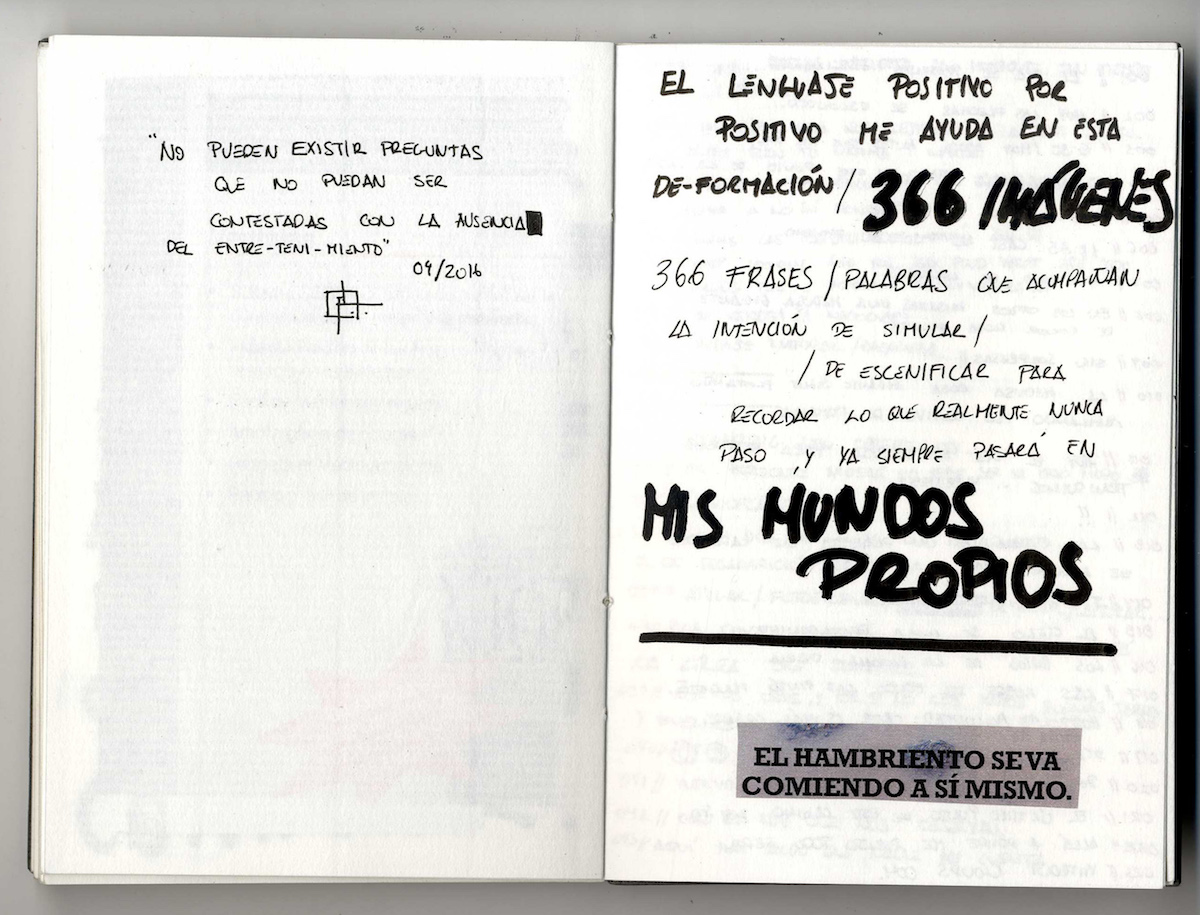 "NO PUEDEN EXISTIR PREGUNTAS
QUE NO PUEDAN SER
CONTESTADAS CON LA AUSENCIA
DEL ENTRE-TENI-MIENTO"
09/2016
EL LENGUAJE POSITIVO POR
POSITIVO ME AYUDA EN ESTA
DE-FORMACIÓN / 366 IMÁGENES
366 FRASES / PALABRAS QUE ACOMPAÑAN
LA INTENCIÓN DE SIMULAR /
/ DE ESCENIFICAR PARA
RECORDAR LO QUE REALMENTE NUNCA
PASO Y YA SIEMPRE PASARÁ EN
MIS MUNDOS
PROPIOS
EL HAMBRIENTO SE VA
COMIENDO A SÍ MISMO.